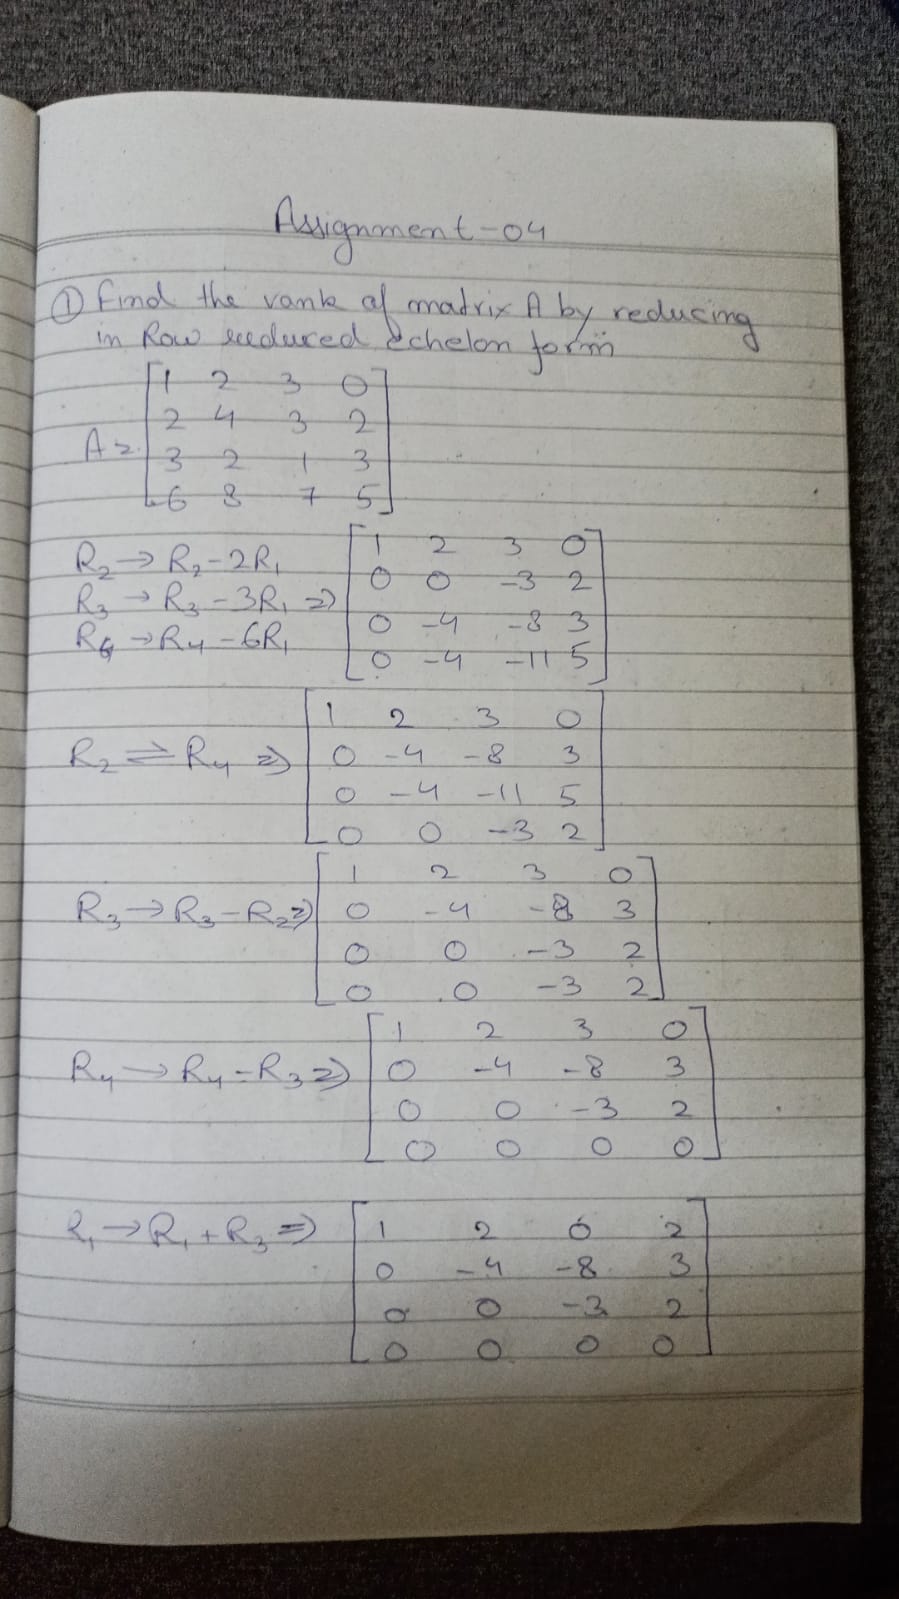 Assignment-04
① Find the rank of matrix A by reducing
in Row reduced Echelon form
A =
1 2 3 0
2 4 3 2
3 2 1 3
6 8 7 5
R₂ → R₂ - 2R₁
R₃ → R₃ - 3R₁ ⇒
R₄ → R₄ - 6R₁
1 2 3 0
0 0 -3 2
0 -4 -8 3
0 -4 -11 5
R₂ ⇌ R₄ ⇒
1 2 3 0
0 -4 -8 3
0 -4 -11 5
0 0 -3 2
R₃ → R₃ - R₂ ⇒
1 2 3 0
0 -4 -8 3
0 0 -3 2
0 0 -3 2
R₄ → R₄ - R₃ ⇒
1 2 3 0
0 -4 -8 3
0 0 -3 2
0 0 0 0
R₁ → R₁ + R₃ ⇒
1 2 0 2
0 -4 -8 3
0 0 -3 2
0 0 0 0